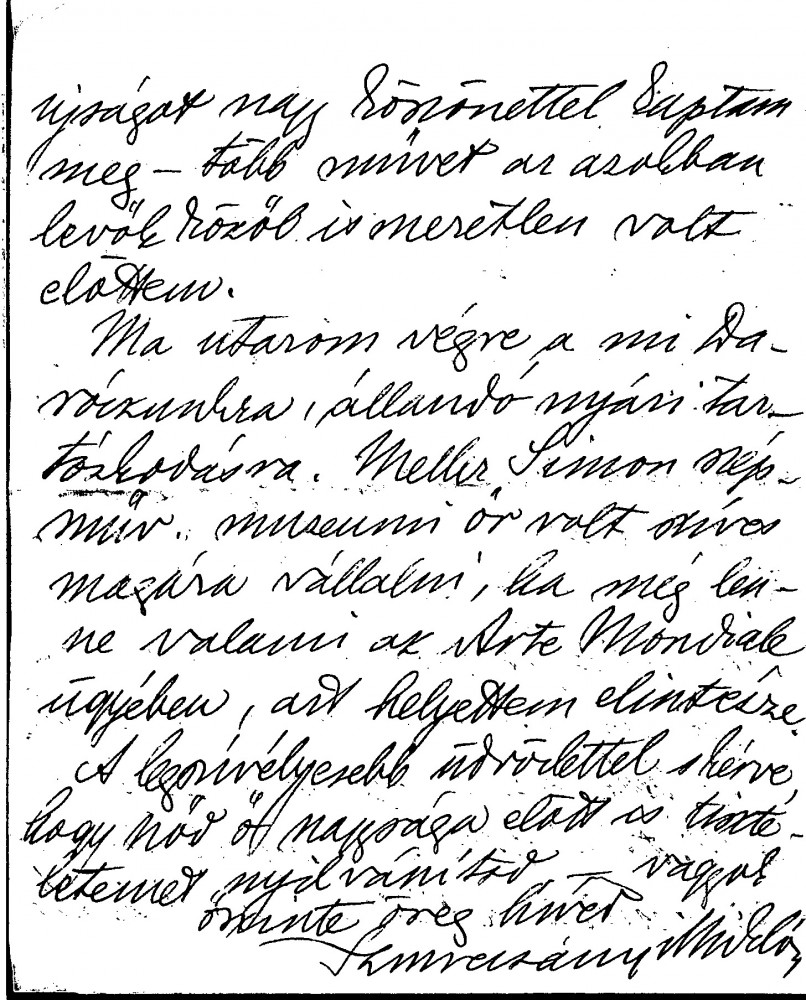 ujságot nagy köszönettel kaptam
meg – több művet az azokban
levők közöl ismeretlen volt
előttem.
Ma utazom végre a mi Da-
róczunkra, állandó nyári tar-
tózkodásra. Meller Simon szép-
műv. muzeumi őr volt szíves
magára vállalni, ha még len-
ne valami az Arte Mondiale
ügyében, azt helyettem elintézze.
A legszívélyesebb üdvözlettel s kérve
hogy nőd ő nagysága előtt is tiszte-
letemet nyilvánítsd – vagyok
őszinte öreg híved
Szmrecsányi Miklós